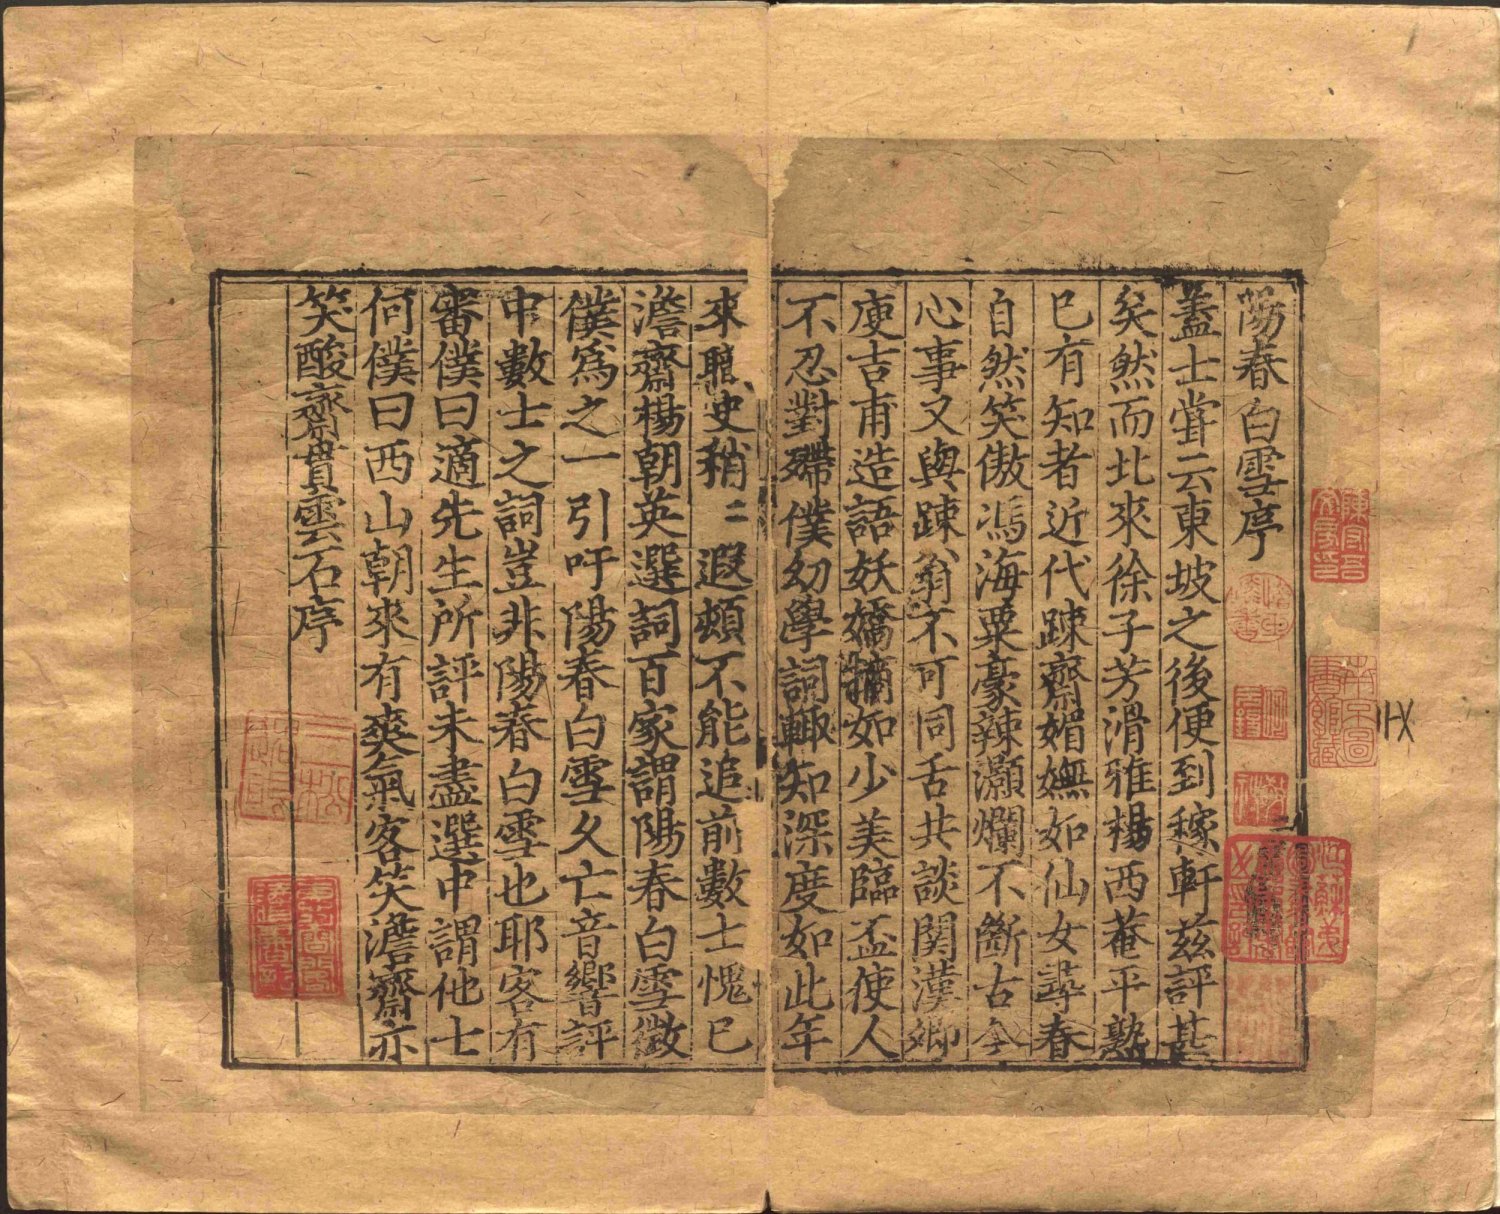 陽春白雪序
蓋士嘗云東坡之後便到稼軒兹評甚
矣然而北來徐子芳滑雅楊西菴平熟
已有知者近代踈齋媚嫵如仙女尋春
自然笑傲馮海粟豪辣灝爛不斷古今
心事又與踈翁不可同舌共談関漢卿
庾吉甫造語妖嬌如少美臨盃使人
不忍對殢僕幼學詞輙知深度如此年
來職史稍二遐頻不能追前數士愧已
澹齋楊朝英選詞百家謂陽春白雪徵
僕爲之一引吁陽春白雪久亡音響評
中數士之詞豈非陽春白雪也耶客有
審僕曰適先生所評未盡選中謂他士
何僕曰西山朝來有爽氣客笑澹齋亦
笑酸齋貫雲石序